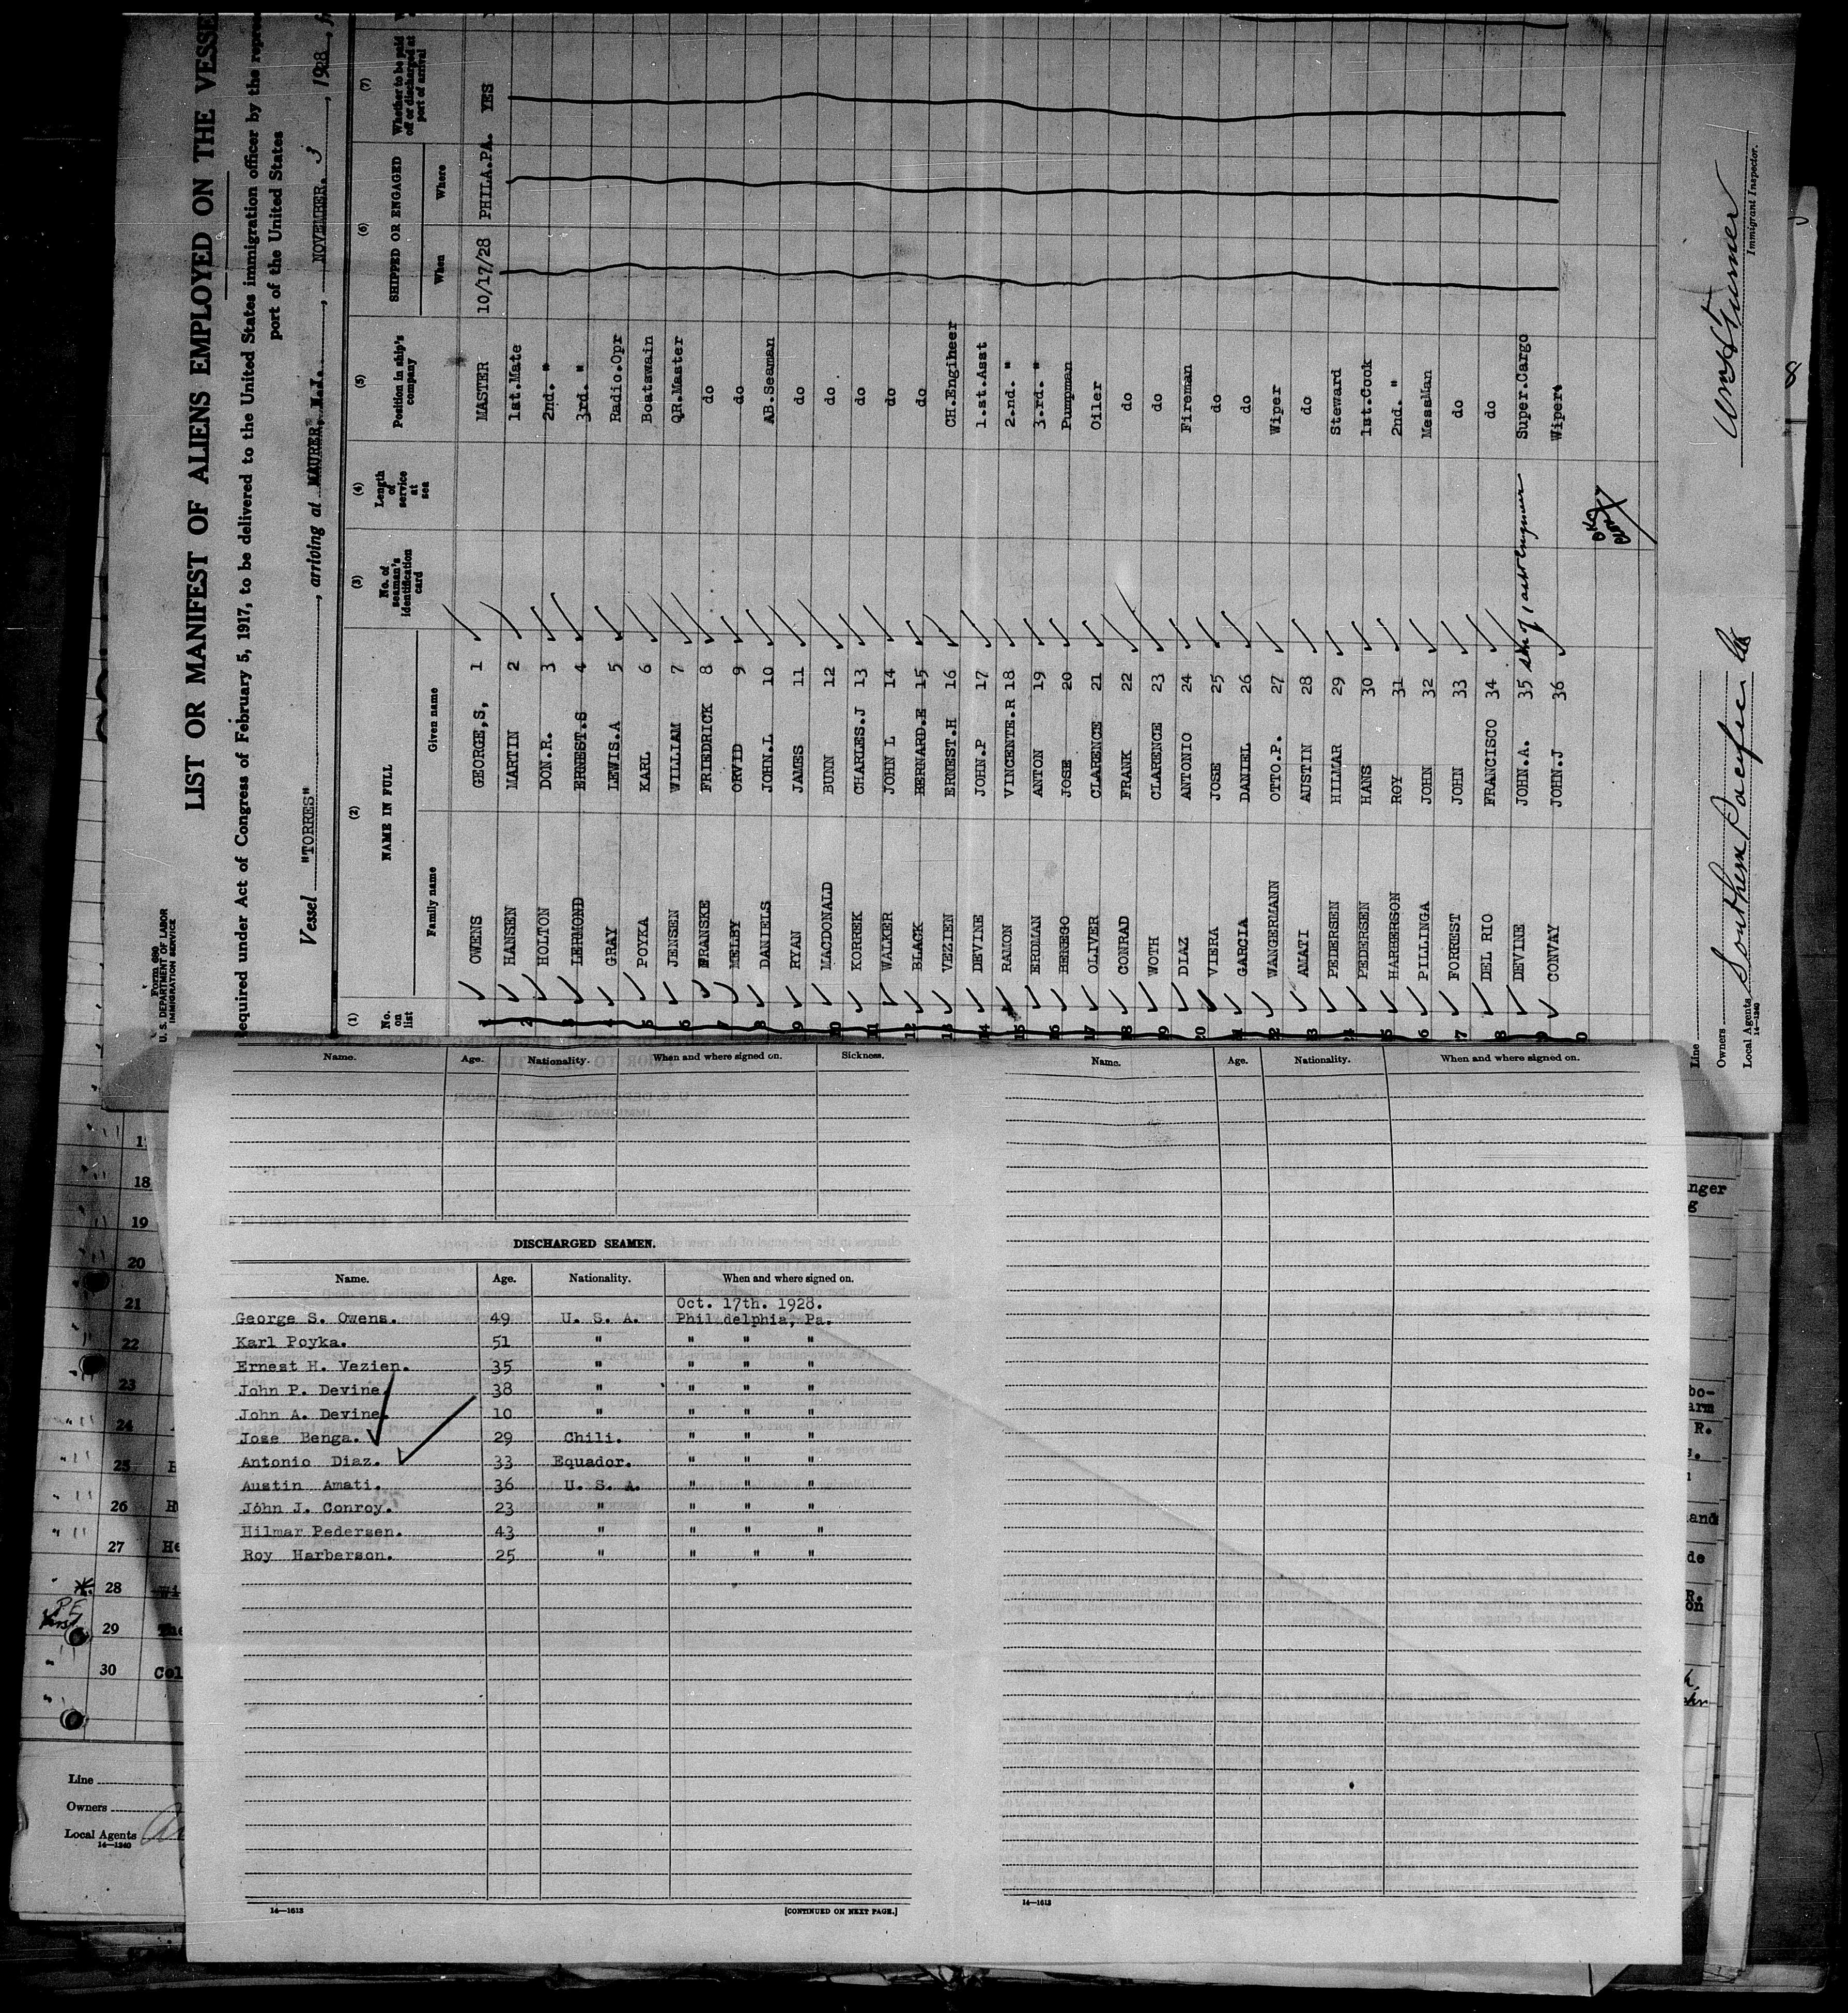 Form 680
U. S. DEPARTMENT OF LABOR
IMMIGRATION SERVICE
LIST OR MANIFEST OF ALIENS EMPLOYED ON THE VESSE
equired under Act of Congress of February 5, 1917, to be delivered to the United States immigration officer by the repre
port of the United States
Vessel "TORRES", arriving at MAURER, N.J., NOVEMBER. 3, 1928, f
(1) (2) (3) (4) (5) (6) (7)
No. on list
NAME IN FULL
Family name Given name
No. of seaman's identification card
Length of service at sea
Position in ship's company
SHIPPED OR ENGAGED
When Where
Whether to be paid off or discharged at port of arrival
1 OWENS GEORGE,S, 1 MASTER 10/17/28 PHILA.PA. YES
2 HANSEN MARTIN 2 1st.Mate
3 HOLTON DON.R. 3 2nd. "
4 LERMOND ERNEST.S 4 3rd. "
5 GRAY LEWIS.A 5 Radio.Opr
6 POYKA KARL 6 Boatswain
7 JENSEN WILLIAM 7 QR.Master
8 FRANSKE FRIEDRICK 8 do
MELBY ORVID 9 do
DANIELS JOHN.L 10 AB.Seaman
9 RYAN JAMES 11 do
10 MACDONALD BUNN 12 do
11 KORKEK CHARLES.J 13 do
WALKER JOHN L 14 do
12 BLACK BERNARD.E 15 do
13 VEZIEN ERNEST.H 16 CH.Engiheer
14 DEVINE JOHN.P 17 1.st.Asst
15 RAMON VINCENTE.R 18 2.nd. "
ERDMAN ANTON 19 3.rd. "
16 BENEGO JOSE 20 Pumpman
17 OLIVER CLARENCE 21 Oiler
18 CONRAD FRANK 22 do
19 WOTH CLARENCE 23 do
20 DIAZ ANTONIO 24 Fireman
VIERA JOSE 25 do
21 GARCIA DANIEL 26 do
22 WANGERMANN OTTO.P. 27 Wiper
23 AMATI AUSTIN 28 do
PEDERSEN HILMAR 29 Steward
24 PEDERSEN HANS 30 1st.Cook
25 HARBERSON ROY 31 2nd. "
26 PILLINGA JOHN 32 MessMan
27 FORREST JOHN 33 do
28 DEL RIO FRANCISCO 34 do
29 DEVINE JOHN.A. 35 son of 1 asst engineer Super.Cargo
30 CONVAY JOHN.J 36 Wiper.
Line
Owners Southern Pacific Co
Local Agents
14—1240
Immigrant Inspector.
Name. Age. Nationality. When and where signed on. Sickness.
DISCHARGED SEAMEN.
Name. Age. Nationality. When and where signed on.
Oct. 17th. 1928.
George S. Owens. 49 U. S. A. Phil delphia, Pa.
Karl Poyka. 51 " " " "
Ernest H. Vezien. 35 " " " "
John P. Devine. 38 " " " "
John A. Devine. 10 " " " "
Jose Benga. 29 Chili. " " "
Antonio Diaz. 33 Equador. " " "
Austin Amati. 36 U. S. A. " " "
John J. Conroy. 23 " " " "
Hilmar Pedersen. 43 " " " "
Roy Harberson. 25 " " " "
14—1613 [CONTINUED ON NEXT PAGE.]
Name. Age. Nationality. When and where signed on.
14—1613
18
19
20
21
22
23
24
25 H
26 H
27 He
28
29 The
30 Col
Line
Owners
Local Agents
14—1240
nger
g
bo-
arm
R.
and
de
R.
on